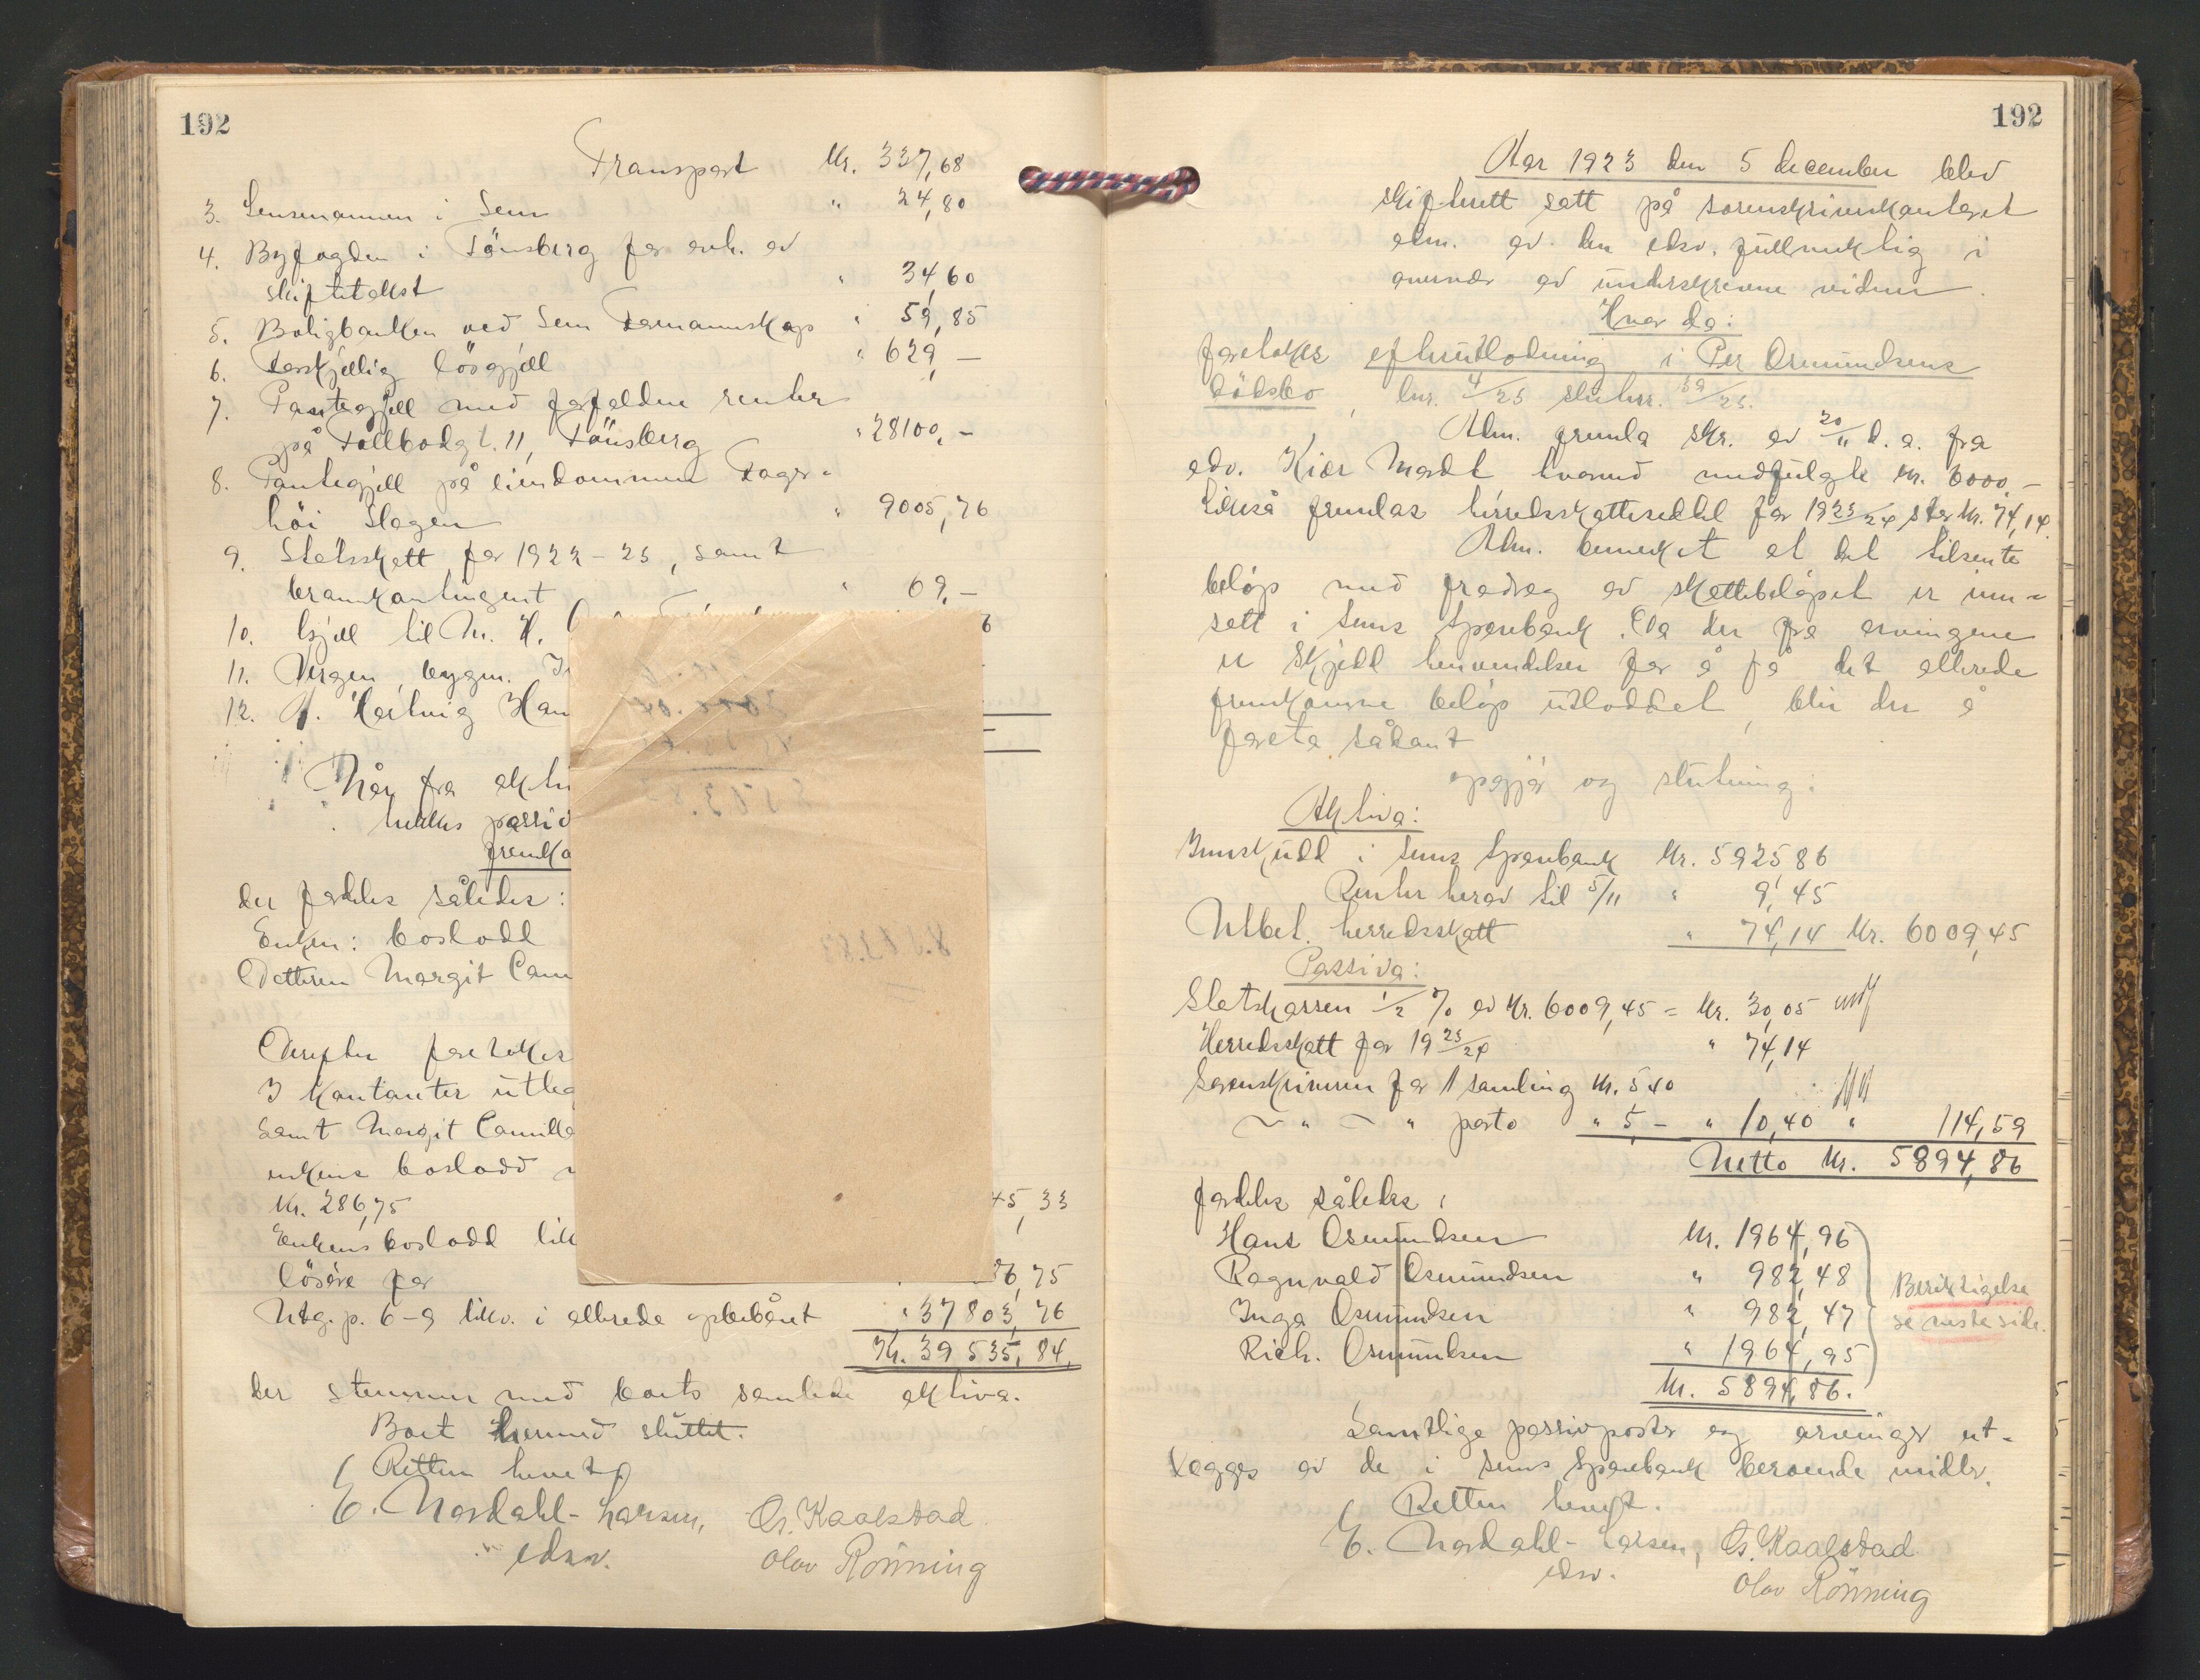 192
Transport Kr. 337,68
3. Lensmannen i Sem " 24,80
4. Byfogden i Tønsberg for avh. av
skiftetakst " 34,60
5. Boligbanken ved Sem Formannskap " 59,85
6. Forskjellig løsgjell " 629,-
7. Pantegjell med forfaldne renter
på Tollbodgt. 11, Tönsberg " 28100,-
8. Pantegjell på eiendommen Fager-
høi Slagen " 9005,76
9. Statsskatt for 1922-23, samt
brannkontingent " 69,-
10. Gjell til M. H.
11. Vergen, bygm.
12. Hedvig Han
Når fra akti
trekkes passiv
fremko
der fordeles således:
Enken: boslodd
Datteren Margit Cam
Derefter foretokes
I kontanter utleg
samt Margit Camilla
enkens boslodd
Kr. 286,75 45,33
Enkens boslodd lik
løsøre for 86,75
Utg. p. 6-9 likv. i allerede opbebåret " 37803,76
Kr. 39535,84.
der stemmer med boets samlede aktiva.
Boet hermed sluttet.
Retten hevet
E. Nordahl-Larsen, O. Kaalstad
edsv. Olav Rönning
192
Aar 1923 den 5 december blev
skifterett satt på sorenskriverkontoret
adm. av den edsv. fullmektig i
overvær av underskrevne vidner.
Hvor da:
foretokes efterutlodning i Per Osmundsens
dödsbo, lnr. 4/23 slutnr. 59/23.
Adm. fremla skr. av 20/11 d. a. fra
adv. Kiær Mordt hvormed medfulgte kr. 6000,-
Likeså fremlas herredsskatteseddel for 1923/24 stor kr. 74,14.
Adm. bemerket at det tilsente
beløp med fradrag av skattebeløpet er inn-
satt i Sems Sparebank. Da der fra arvingene
er skjedd henvendelser for å få det allerede
fremkomne beløp utloddet, blir der å
foreta sådant
opgjør og slutning:
Aktiva:
Innskudd i Sems Sparebank Kr. 5925,86
Renter herav til 5/11 " 9,45
Utbet. herredsskatt " 74,14 Kr. 6009,45
Passiva:
Statskassen 1/2 % av Kr. 6009,45 = Kr. 30,05
Herredsskatt for 1923/24 " 74,14
Sorenskriveren for 1 samling Kr. 5,40
" " porto " 5,- " 10,40 " 114,59
Netto Kr. 5894,86
fordeles således:
Hans Osmundsen Kr. 1964,96
Ragnvald Osmundsen " 982,48
Inga Osmundsen " 982,47
Rich. Osmundsen " 1964,95
Kr. 5894,86.
Beriktigelse
se næste side.
Samtlige passivposter og arvinger ut-
lægges av de i Sems Sparebank beroende midler.
Retten hevet.
E. Nordahl-Larsen, O. Kaalstad
edsv. Olav Rönning